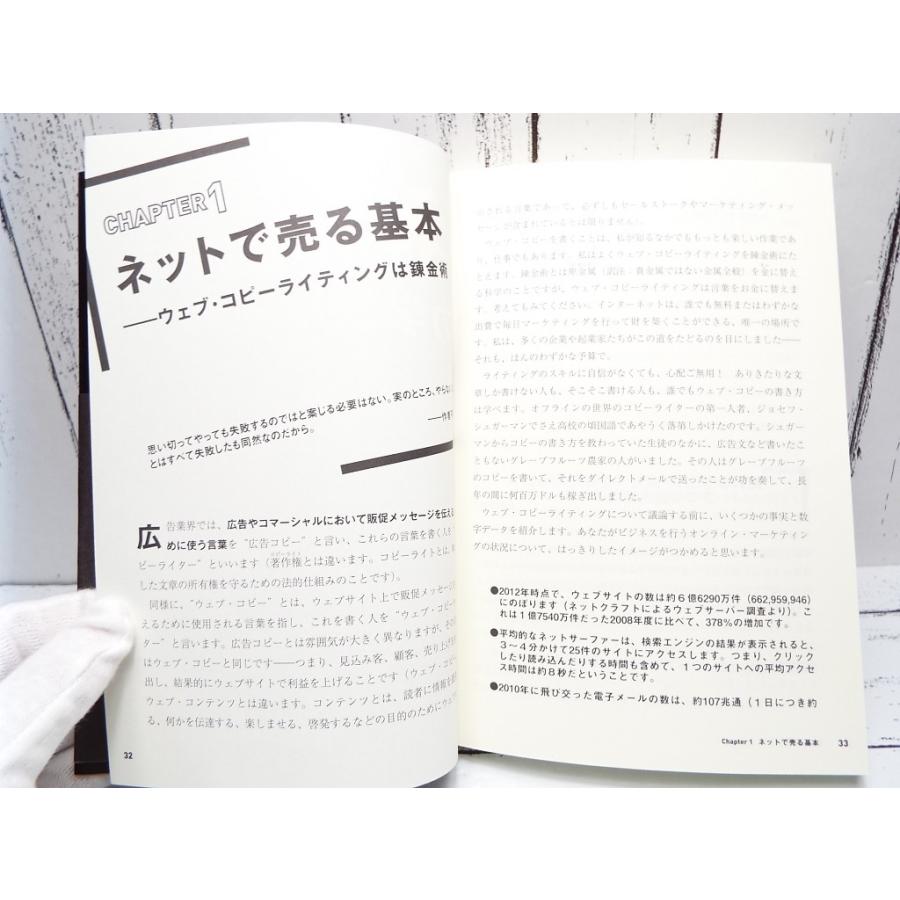 CHAPTER1
ネットで売る基本
──ウェブ・コピーライティングは錬金術
思い切ってやっても失敗するのではと案じる必要はない。実のところ、やらない
とはすべて失敗したも同然なのだから。
──作者不
広告業界では、広告やコマーシャルにおいて販促メッセージを伝える
めに使う言葉を“広告コピー”と言い、これらの言葉を書く人を
ピーライター”といいます（著作権とは違います。コピーライトとは、
した文章の所有権を守るための法的仕組みのことです）。
同様に、“ウェブ・コピー”とは、ウェブサイト上で販促メッセー
えるために使用される言葉を指し、これを書く人を“ウェブ・コピ
ター”と言います。広告コピーとは雰囲気が大きく異なりますが、
はウェブ・コピーと同じです──つまり、見込み客、顧客、売り上げ
出し、結果的にウェブサイトで利益を上げることです（ウェブ・コピ
ウェブ・コンテンツとは違います。コンテンツとは、読者に情報を
る、何かを伝達する、楽しませる、啓発するなどの目的のためにウェブ
32
示される言葉であって、必ずしもセールストークやマーケティング・メッ
セージが含まれているとは限りません）。
ウェブ・コピーを書くことは、私が知るなかでももっとも楽しい作業であ
り、仕事でもあります。私はよくウェブ・コピーライティングを錬金術にた
とえます。錬金術とは卑金属（訳注：貴金属ではない金属全般）を金に替え
る科学のことですが、ウェブ・コピーライティングは言葉をお金に替えま
す。考えてもみてください。インターネットは、誰でも無料またはわずかな
出費で毎日マーケティングを行って財を築くことができる、唯一の場所で
す。私は、多くの企業や起業家たちがこの道をたどるのを目にしました──
それも、ほんのわずかな予算で。
ライティングのスキルに自信がなくても、心配ご無用！　ありきたりな文
章しか書けない人も、そこそこ書ける人も、誰でもウェブ・コピーの書き方
は学べます。オフラインの世界のコピーライターの第一人者、ジョセフ・
シュガーマンでさえ高校の頃国語であやうく落第しかけたのです。シュガー
マンからコピーの書き方を教わっていた生徒のなかに、広告文など書いたこ
ともないグレープフルーツ農家の人がいました。その人はグレープフルーツ
のコピーを書いて、それをダイレクトメールで送ったことが功を奏して、長
年の間に何百万ドルも稼ぎ出しました。
ウェブ・コピーライティングについて議論する前に、いくつかの事実と数
字データを紹介します。あなたがビジネスを行うオンライン・マーケティング
の状況について、はっきりしたイメージがつかめると思います。
●2012年時点で、ウェブサイトの数は約6億6290万件（662,959,946）
にのぼります（ネットクラフトによるウェブサーバー調査より）。こ
れは1億7540万件だった2008年度に比べて、378％の増加です。
●平均的なネットサーファーは、検索エンジンの結果が表示されると、
3～4分かけて25件のサイトにアクセスします。つまり、クリック
したり読み込んだりする時間も含めて、1つのサイトへの平均アクセ
ス時間は約8秒だということです。
●2010年に飛び交った電子メールの数は、約107兆通（1日につき約
Chapter 1　ネットで売る基本　33